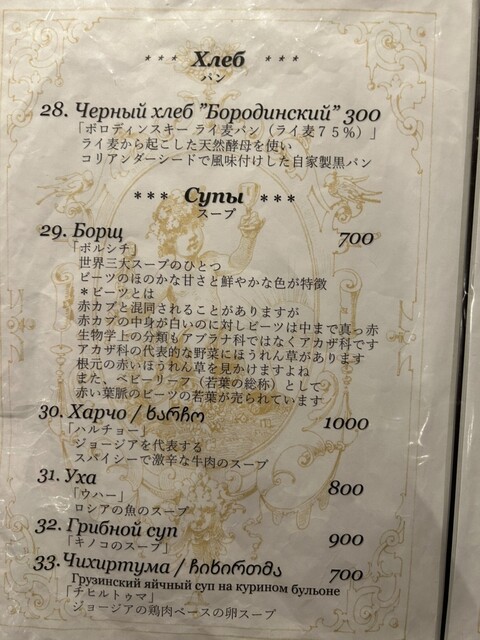 *** Хлеб ***
パン
28. Черный хлеб "Бородинский" 300
「ボロディンスキー ライ麦パン（ライ麦７５％）」
ライ麦から起こした天然酵母を使い
コリアンダーシードで風味付けした自家製黒パン
*** Супы ***
スープ
29. Борщ 700
「ボルシチ」
世界三大スープのひとつ
ビーツのほのかな甘さと鮮やかな色が特徴
＊ビーツとは
赤カブと混同されることがありますが
赤カブの中身が白いのに対しビーツは中まで真っ赤
生物学上の分類もアブラナ科ではなくアカザ科です
アカザ科の代表的な野菜にほうれん草があります
根元の赤いほうれん草を見かけますよね
また、ベビーリーフ（若葉の総称）として
赤い葉脈のビーツの若葉が売られています
30. Харчо / ხარჩო 1000
「ハルチョー」
ジョージアを代表する
スパイシーで激辛な牛肉のスープ
31. Уха 800
「ウハー」
ロシアの魚のスープ
32. Грибной суп 900
「キノコのスープ」
33. Чихиртума / ჩიხირთმა 700
Грузинский яичный суп на курином бульоне
「チヒルトゥマ」
ジョージアの鶏肉ベースの卵スープ